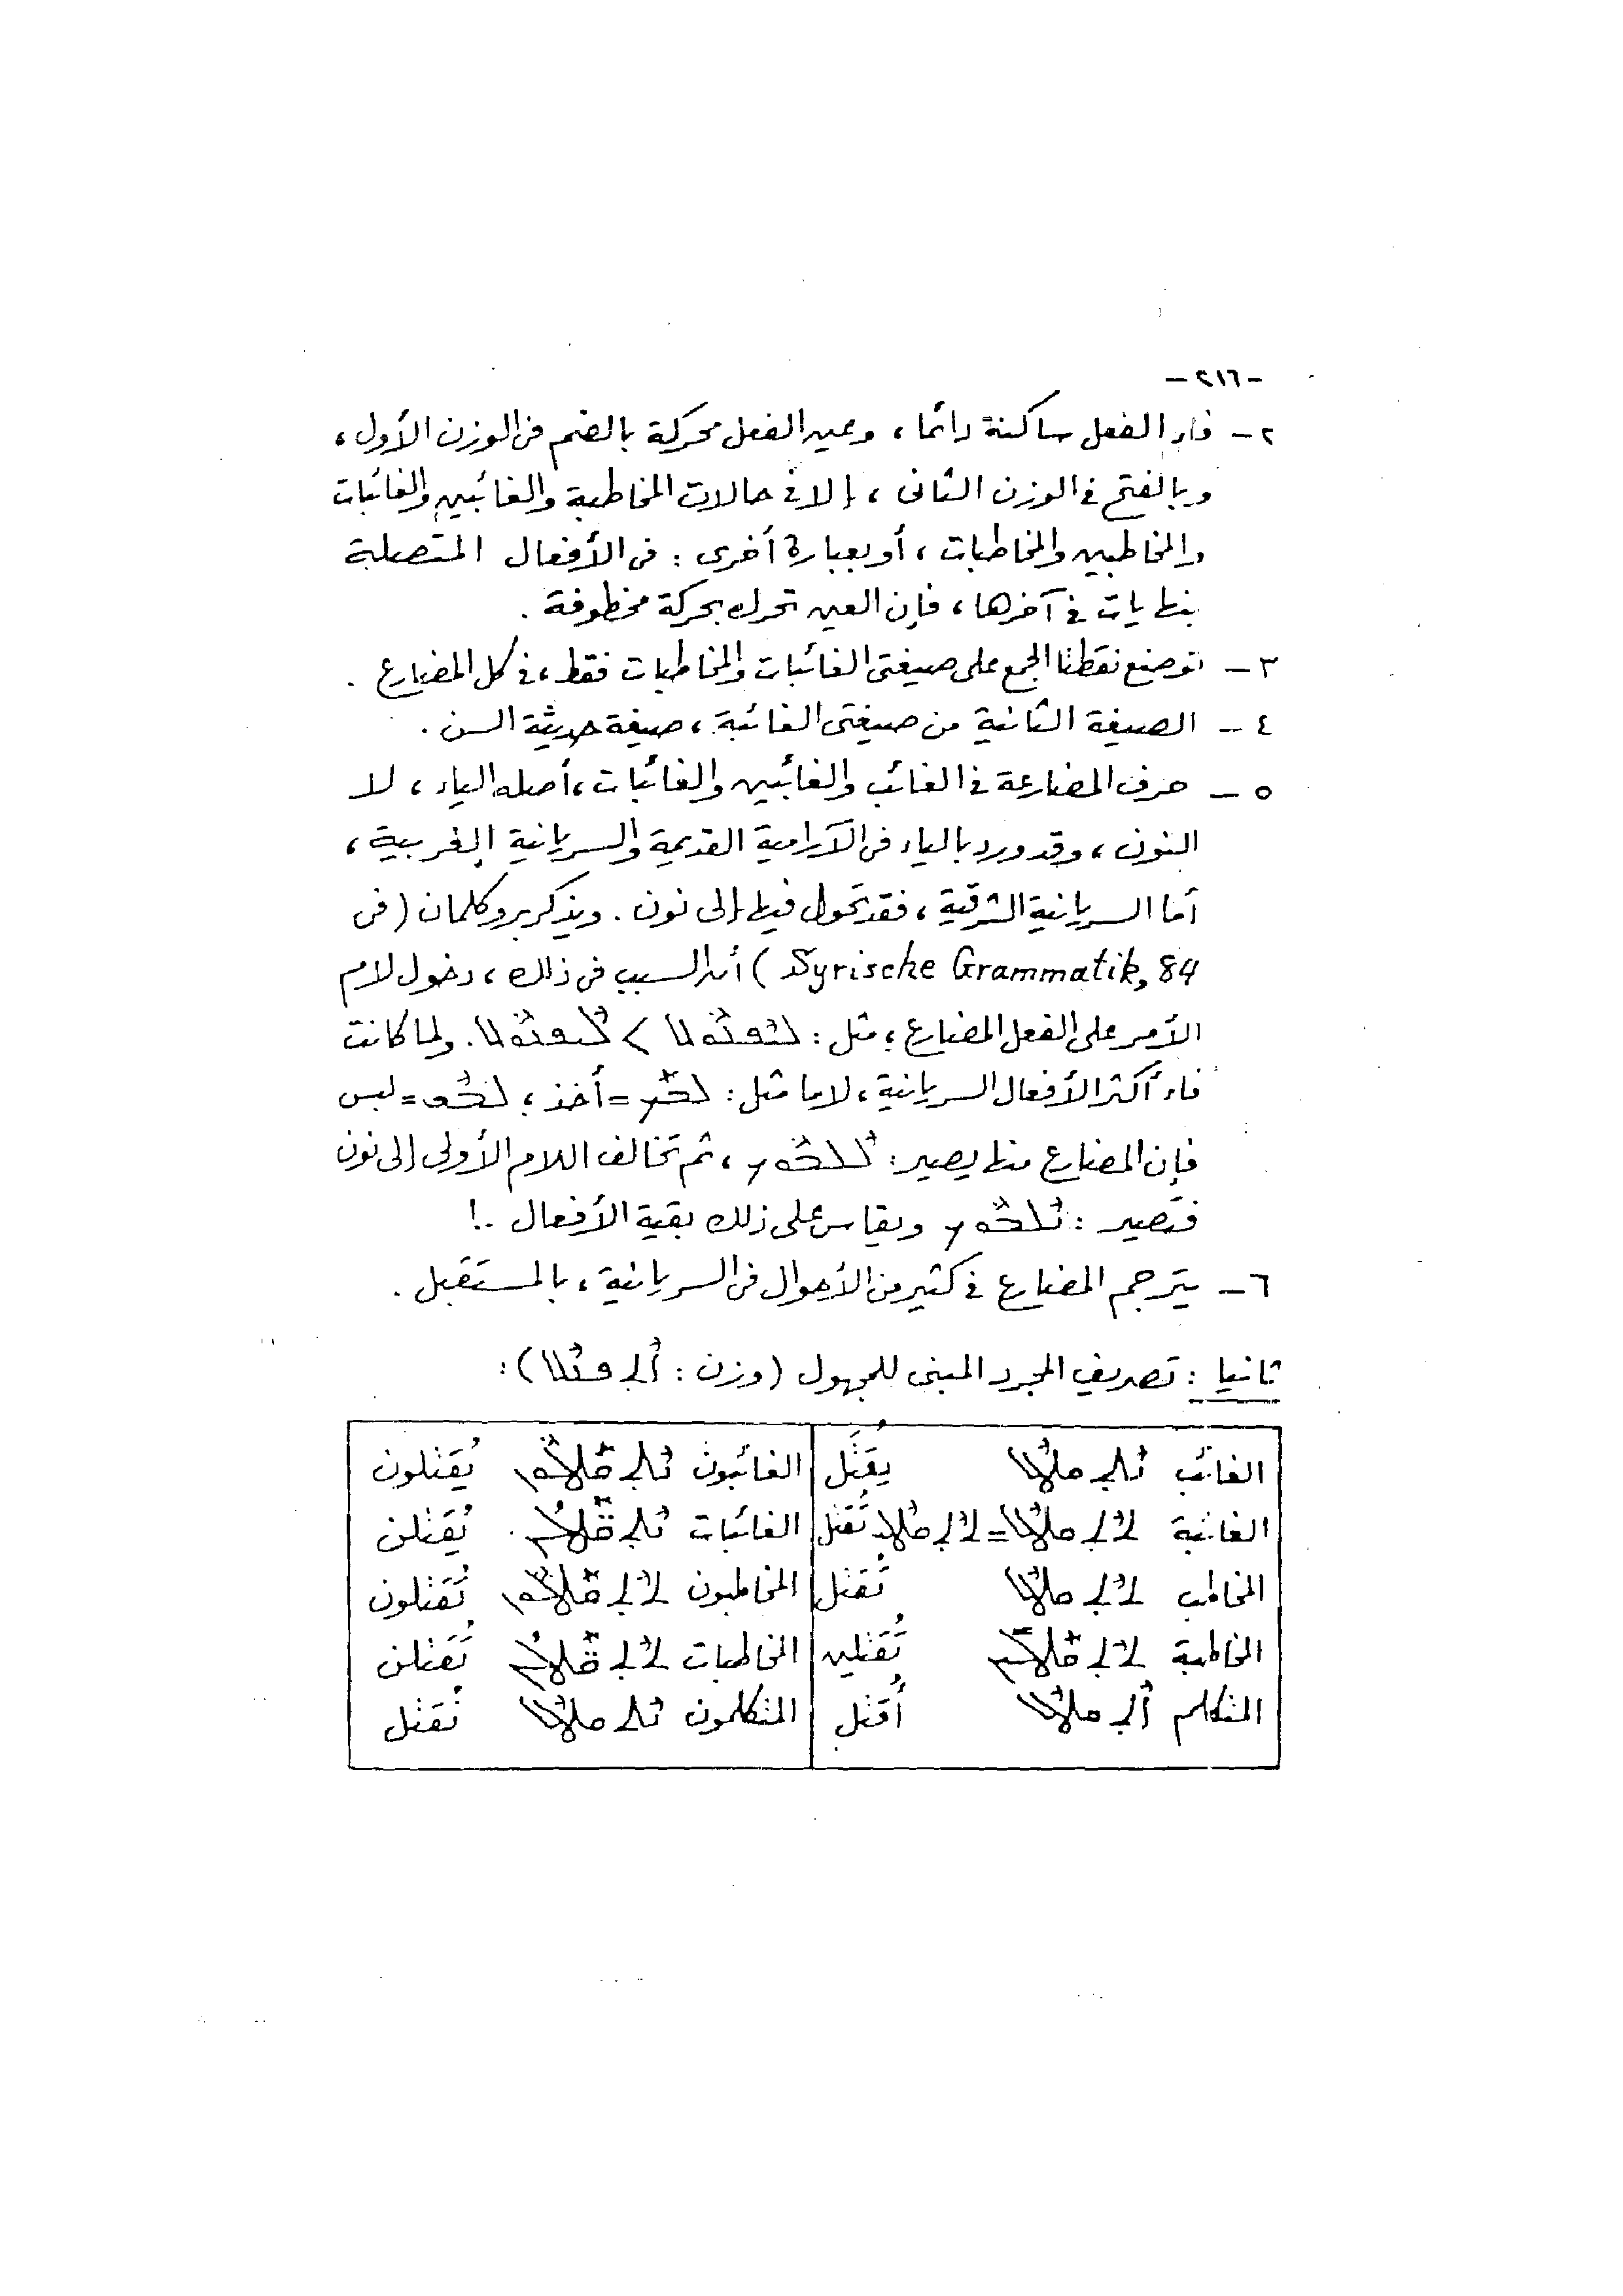 -٢١٦-
٢- فاء الفعل ساكنة دائما، وعين الفعل محركة بالضم فى الوزن الأول،
وبالفتح فى الوزن الثانى، إلا فى حالات المخاطبة والغائبين والغائبات
والمخاطبين والمخاطبات، أو بعبارة أخرى: فى الأفعال المتصلة
بنهايات فى آخرها، فإن العين تحرك بحركة مخطوفة.
٣- توضع نقطتا الجمع على صيغتى الغائبات والمخاطبات فقط، فى كل المضارع.
٤- الصيغة الثانية من صيغتى الغائبة، صيغة حديثة السن.
٥- حرف المضارعة فى الغائب والغائبين والغائبات، أصله الياء، لا
النون، وقد ورد بالياء فى الآرامية القديمة والسريانية الغربية،
أما السريانية الشرقية، فقد تحول فيها إلى نون. ويذكر بروكلمان (فى
Syrische Grammatik, 84) أن السبب فى ذلك، دخول لام
الأمر على الفعل المضارع؛ مثل: . ولما كانت
فاء أكثر الأفعال السريانية، لاما مثل: = أخذ؛ = لبس
فإن المضارع منها يصير: ، ثم تخالف اللام الأولى إلى نون
فتصير: ويقاس على ذلك بقية الأفعال ..!
٦- يترجم المضارع فى كثير من الأحوال فى السريانية، بالمستقبل.
ثانيا: تصريف المجرد المبنى للمجهول (وزن: ):
الغائب يُقتَل الغائبون يُقَتلون
الغائبة = تُقتَل الغائبات يُقتلن
المخاطب تُقتل المخاطبون تُقتلون
المخاطبة تُقتلين المخاطبات تُقتلن
المتكلم أُقتل المتكلمون نُقتل